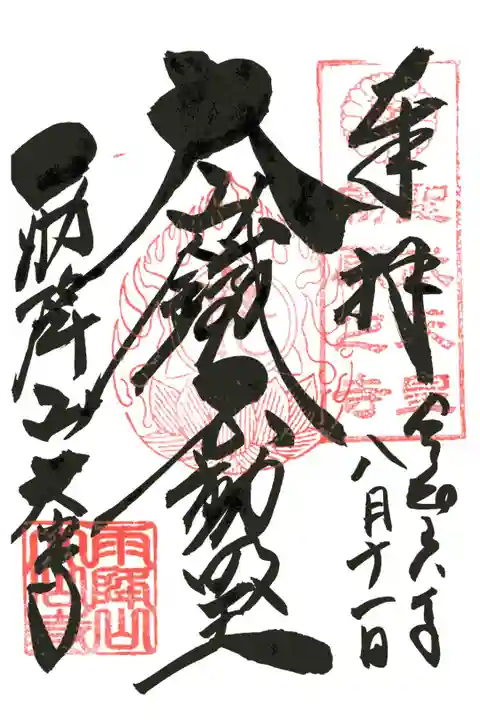 奉拝
聖武天皇
勅願之寺
令和六年
八月十一日
大鐵不動明王
雨降山大山寺
雨降山
大山寺